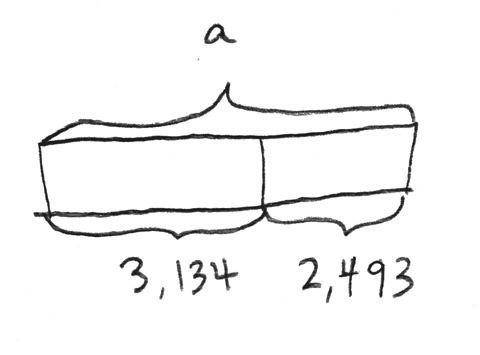 a
3,134 2,493